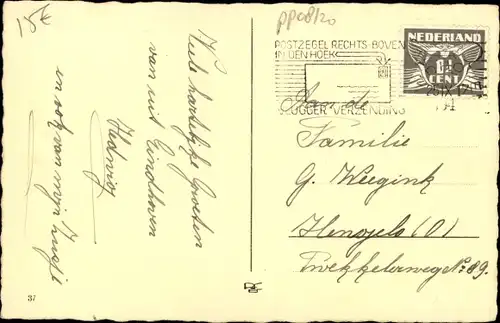 15€
pp08/20
POSTZEGEL RECHTS BOVEN
IN DEN HOEK
VLUGGER VERZENDING
NEDERLAND
1½
CENT
Aan de
Familie
G. Weegink
Hengelo (O)
Twekkelerweg No: 89.
Vele hartelijke Groeten
van uit Eindhoven
Hedwig
en ook van mijn
37